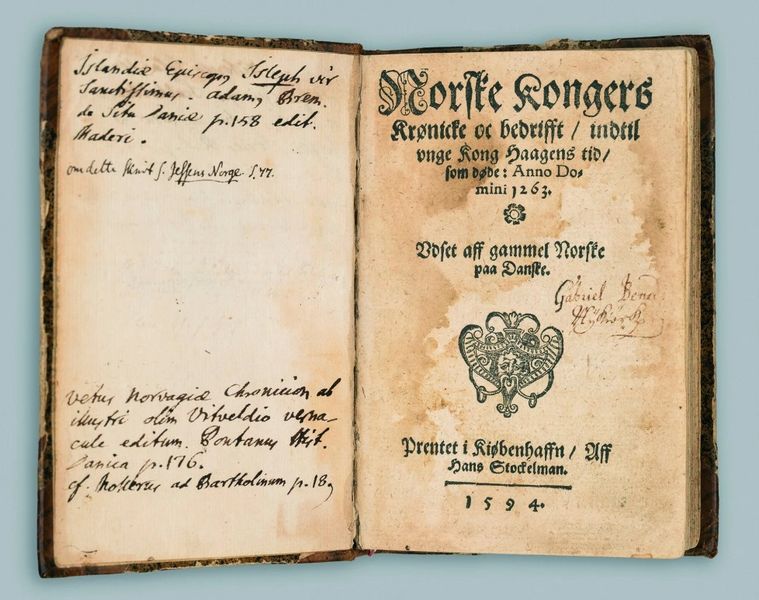 Islandiæ Episcopus Isleph vir
Sanctissimus. Adamus Brem.
de Situ Daniæ p. 158 edit.
Maderi.
om dette skrift s. Jessens Norge S. 77.
Vetus Norvagiæ Chronicion ab
illustri olim Vitveldio verna-
cule editum. Pontanus Hist.
Danica p. 176.
cf. Mollerus ad Bartholinum p. 18
Norske Kongers
Krønicke oc bedrifft / indtil
vnge Kong Haagens tid /
som døde: Anno Do-
mini 1263.
Vdset aff gammel Norske
paa Danske.
Gabriel
Prentet i Kiøbenhaffn / Aff
Hans Stockelman.
1594.